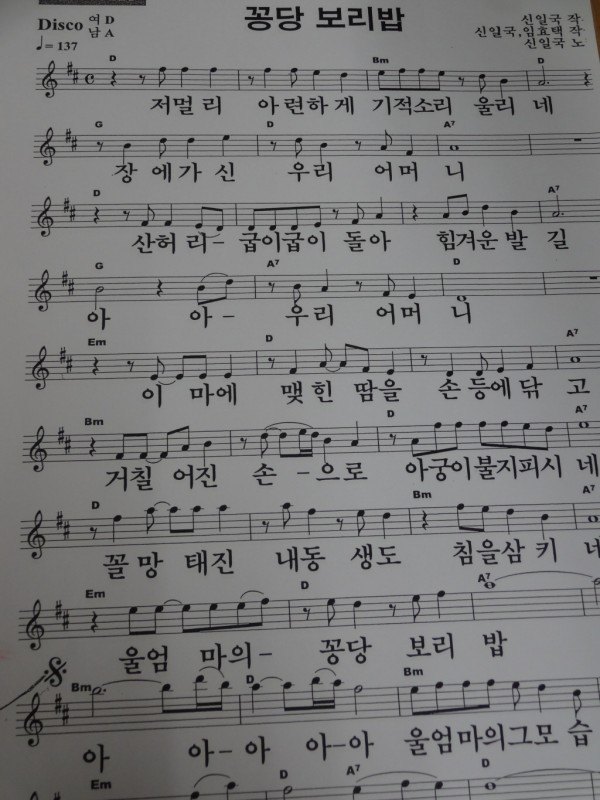 꽁당 보리밥
Disco 여 D
남 A
♩= 137
신일국 작
신일국,임효택 작
신일국 노
D Bm D
저멀 리 아련하 게 기적소리 울리 네
G D A7
장 에가 신 우리 어머 니
D A7
산허 리- 굽이굽이 돌아 힘겨운 발 길
G A7 D
아 아- 우리 어머 니
Em D A7
이 마에 맺 힌 땀을 손 등에 닦 고
Bm D A7
거칠 어진 손 -으로 아궁이불지피시 네
D Bm A7
꼴 망 태진 내동 생도 침을삼 키 네
Em D A7
울엄 마의- 꽁당 보리 밥
Bm D Bm
아 아- 아 아-아 울엄마의그모 습
Em D A7 D